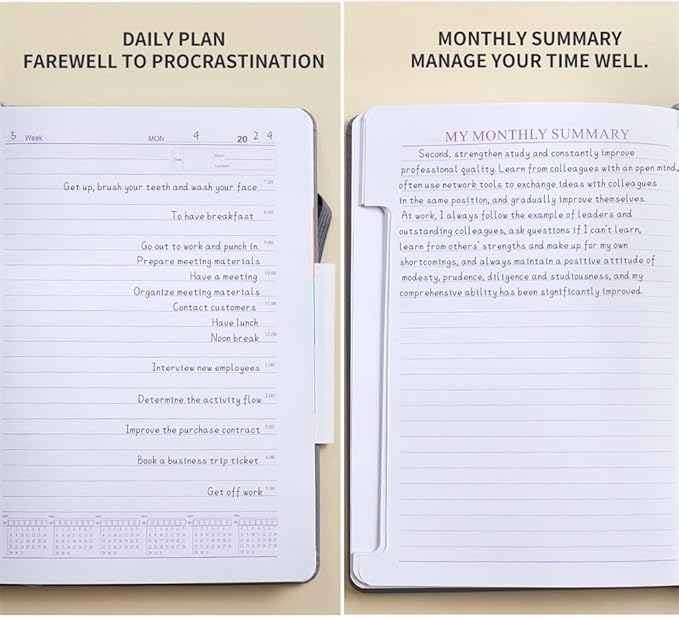 DAILY PLAN
FAREWELL TO PROCRASTINATION
5 Week MON 9 20 2 9
Get up, brush your teeth and wash your face 7.00
To have breakfast 8.00
Go out to work and punch in. 9.00
Prepare meeting materials
Have a meeting 10.00
Organize meeting materials
Contact customers 11.00
Have lunch
Noon break 12.00
Interview new employees 1.00
Determine the activity flow 2.00
Improve the purchase contract 3.00
Book a business trip ticket 4.00
Get off work 5.00
MONTHLY SUMMARY
MANAGE YOUR TIME WELL.
MY MONTHLY SUMMARY
Second, strengthen study and constantly improve
professional quality. Learn from colleagues with an open mind,
often use network tools to exchange ideas with colleagues
in the same position, and gradually improve themselves.
At work, I always follow the example of leaders and
outstanding colleagues, ask questions if I can't learn,
learn from others' strengths and make up for my own
shortcomings, and always maintain a positive attitude of
modesty, prudence, diligence and studiousness, and my
comprehensive ability has been significantly improved.